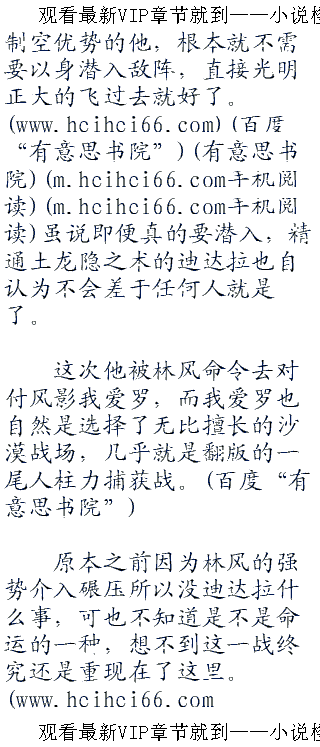 观看最新VIP章节就到——小说检
制空优势的他，根本就不需
要以身潜入敌阵，直接光明
正大的飞过去就好了。
(www.hcihci66.com)(百度
“有意思书院”)(有意思书
院)(m.hcihci66.com手机阅
读)(m.hcihci66.com手机阅
读)虽说即便真的要潜入，精
通土龙隐之术的迪达拉也自
认为不会差于任何人就是
了。
这次他被林风命令去对
付风影我爱罗，而我爱罗也
自然是选择了无比擅长的沙
漠战场，几乎就是翻版的一
尾人柱力捕获战。(百度“有
意思书院”)
原本之前因为林风的强
势介入碾压所以没迪达拉什
么事，可也不知道是不是命
运的一种，想不到这一战终
究还是重现在了这里。
(www.hcihci66.com
观看最新VIP章节就到——小说检